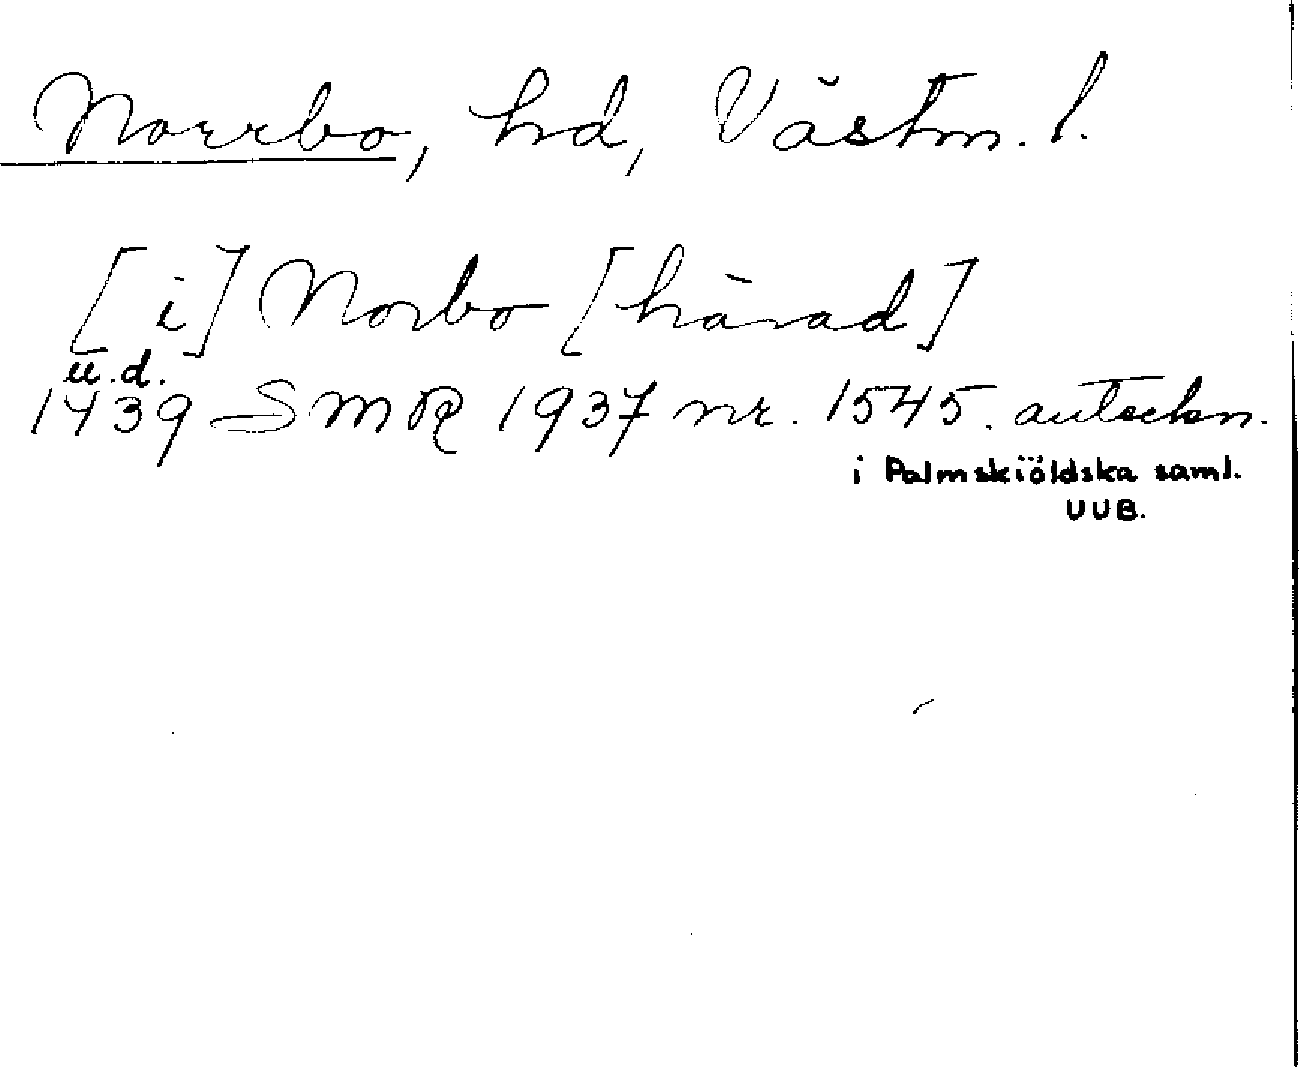 Norrbo, hd, Västm. l.
[i] Norbo [härad]
u.d.
1439 SMR 1937 nr. 1545. anteckn.
i Palmskiöldska saml.
UUB.